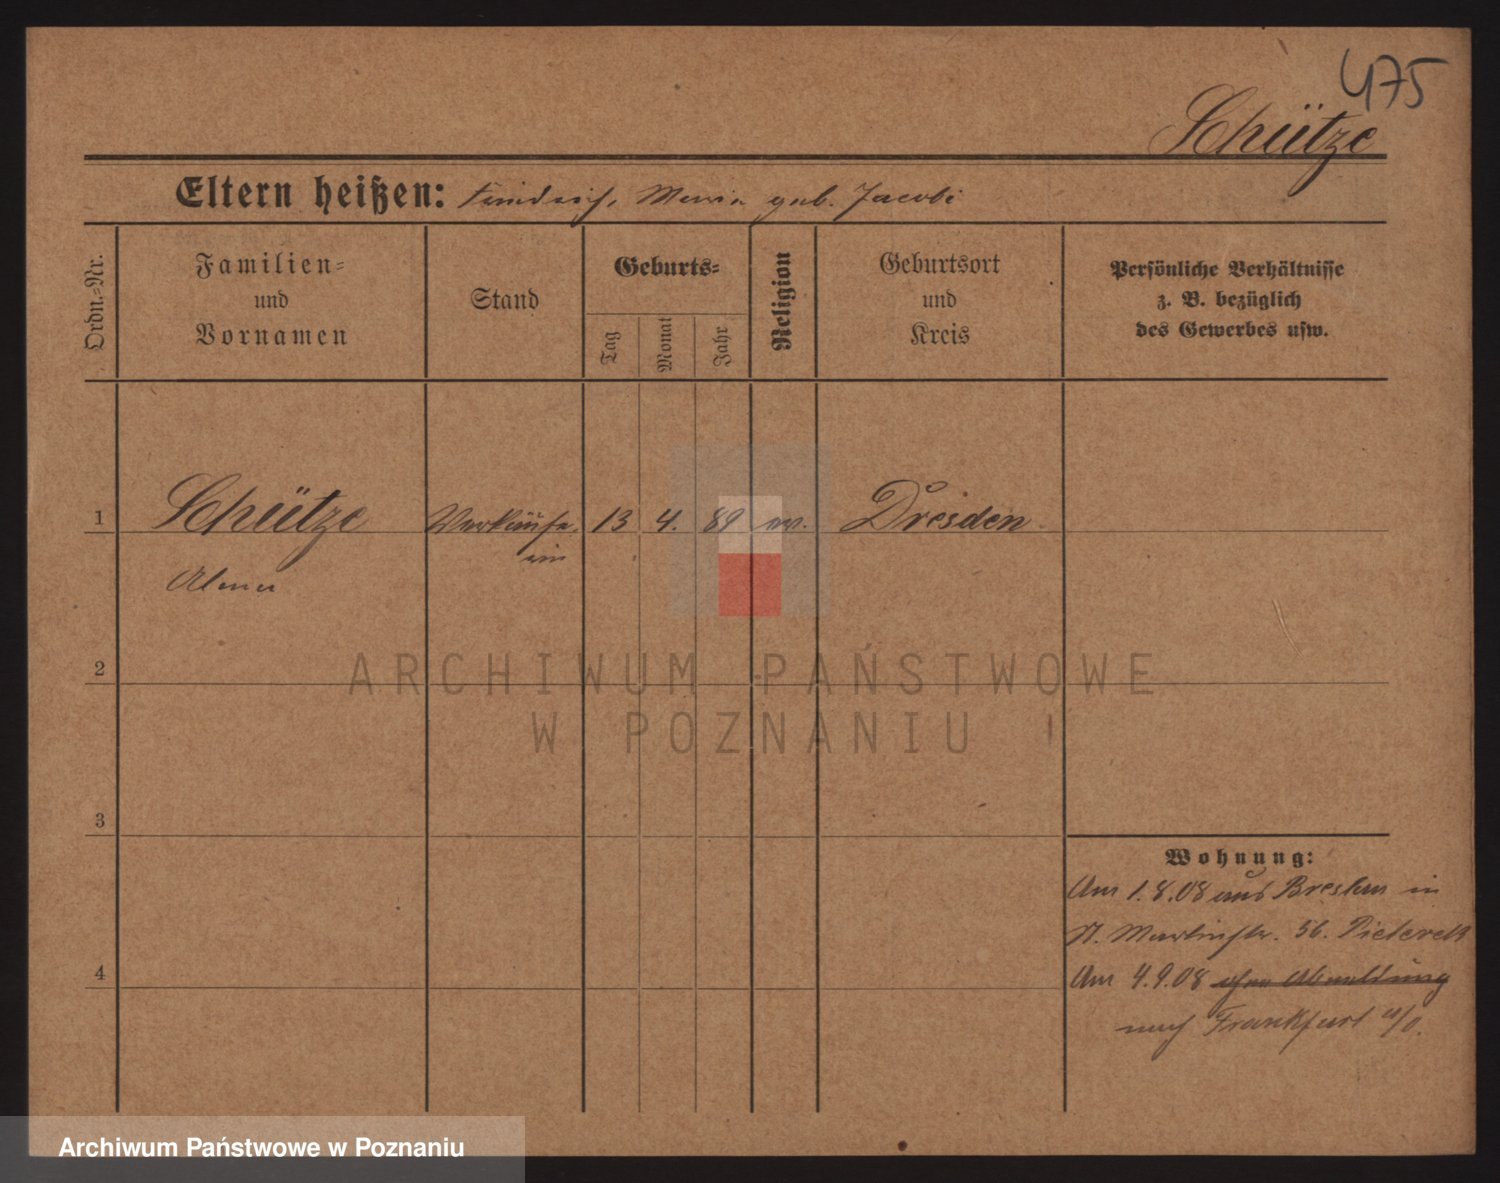 475
Schütze
Eltern heißen: Friedrich, Maria geb. Jacobi
Ordn.-Nr.
Familien-
und
Vornamen
Stand
Geburts-
Tag
Monat
Jahr
Religion
Geburtsort
und
Kreis
Persönliche Verhältnisse
z. B. bezüglich
des Gewerbes usw.
1 Schütze Verkäufe. 13 4. 89 ev. Dresden
rin
Alma
2
3
4
Wohnung:
Am 1.8.08 aus Breslau in
St. Martinstr. 56.
Am 4.9.08 ohne Abmeldung
nach Frankfurt a/O.
ARCHIWUM PAŃSTWOWE
W POZNANIU
Archiwum Państwowe w Poznaniu